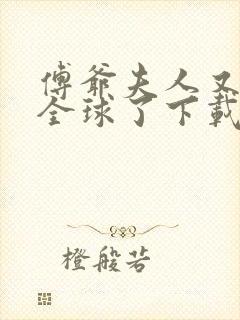 傅爺夫人又
全球了下載
橙般若